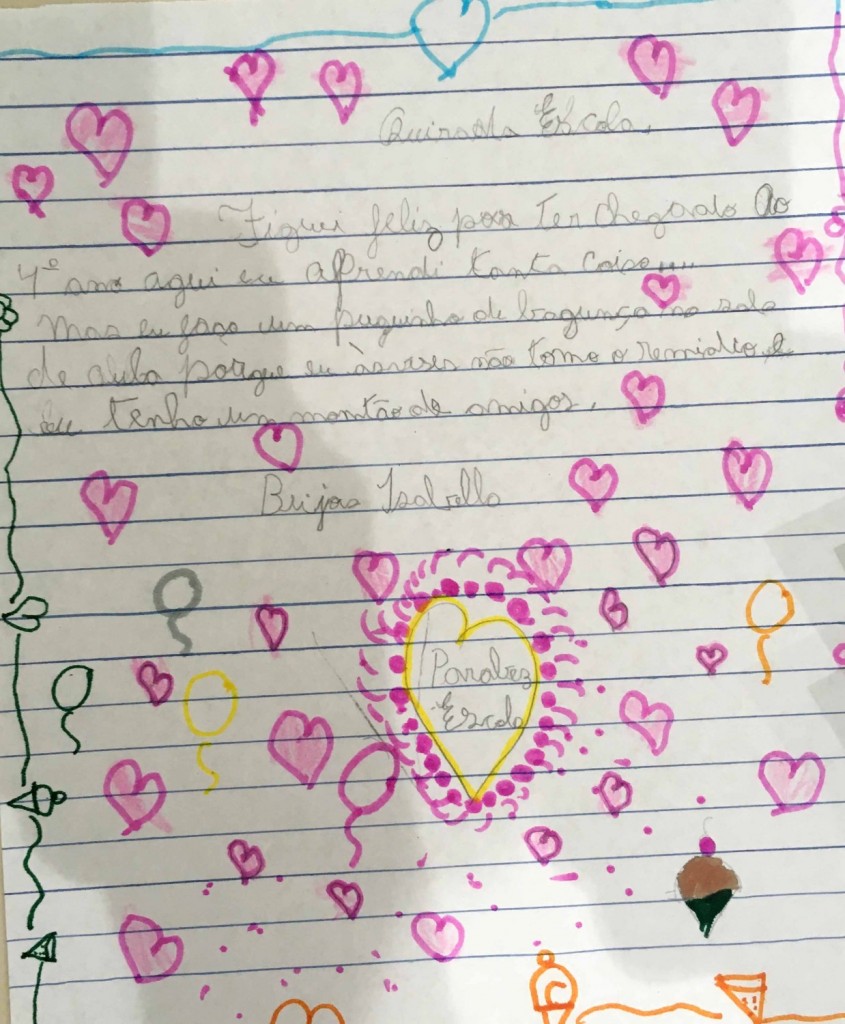 Queirada Escola.
Fiquei feliz por Ter chegado Ao
4º ano aqui eu aprendi tanta coisa....
mas eu faço um puquinho de bagunça na sala
de aula porque eu às vezes não tomo o remidio e
eu tenho um montão de amigos.
Beijos Isabella
Parabez
Escola